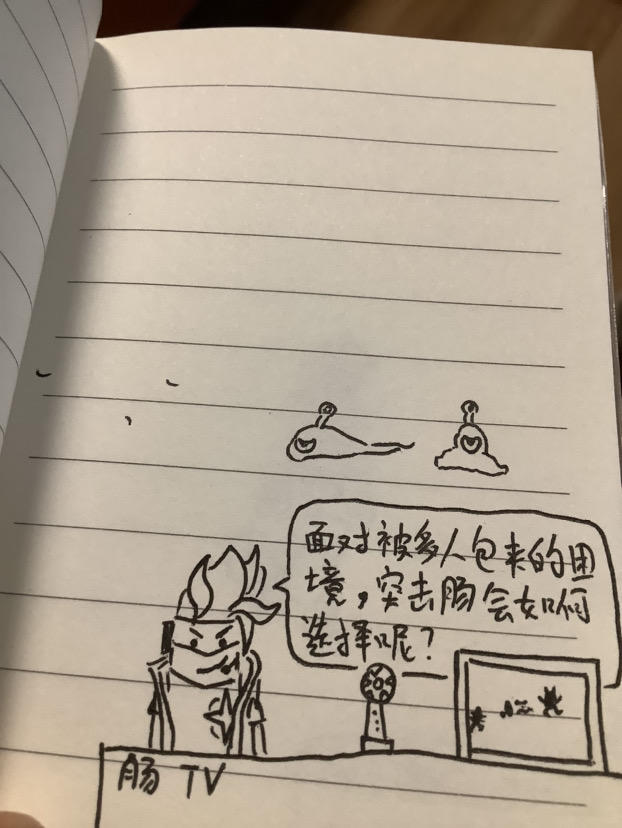 面对被多人包来的困
境，突击肠会如何
选择呢？
肠 TV